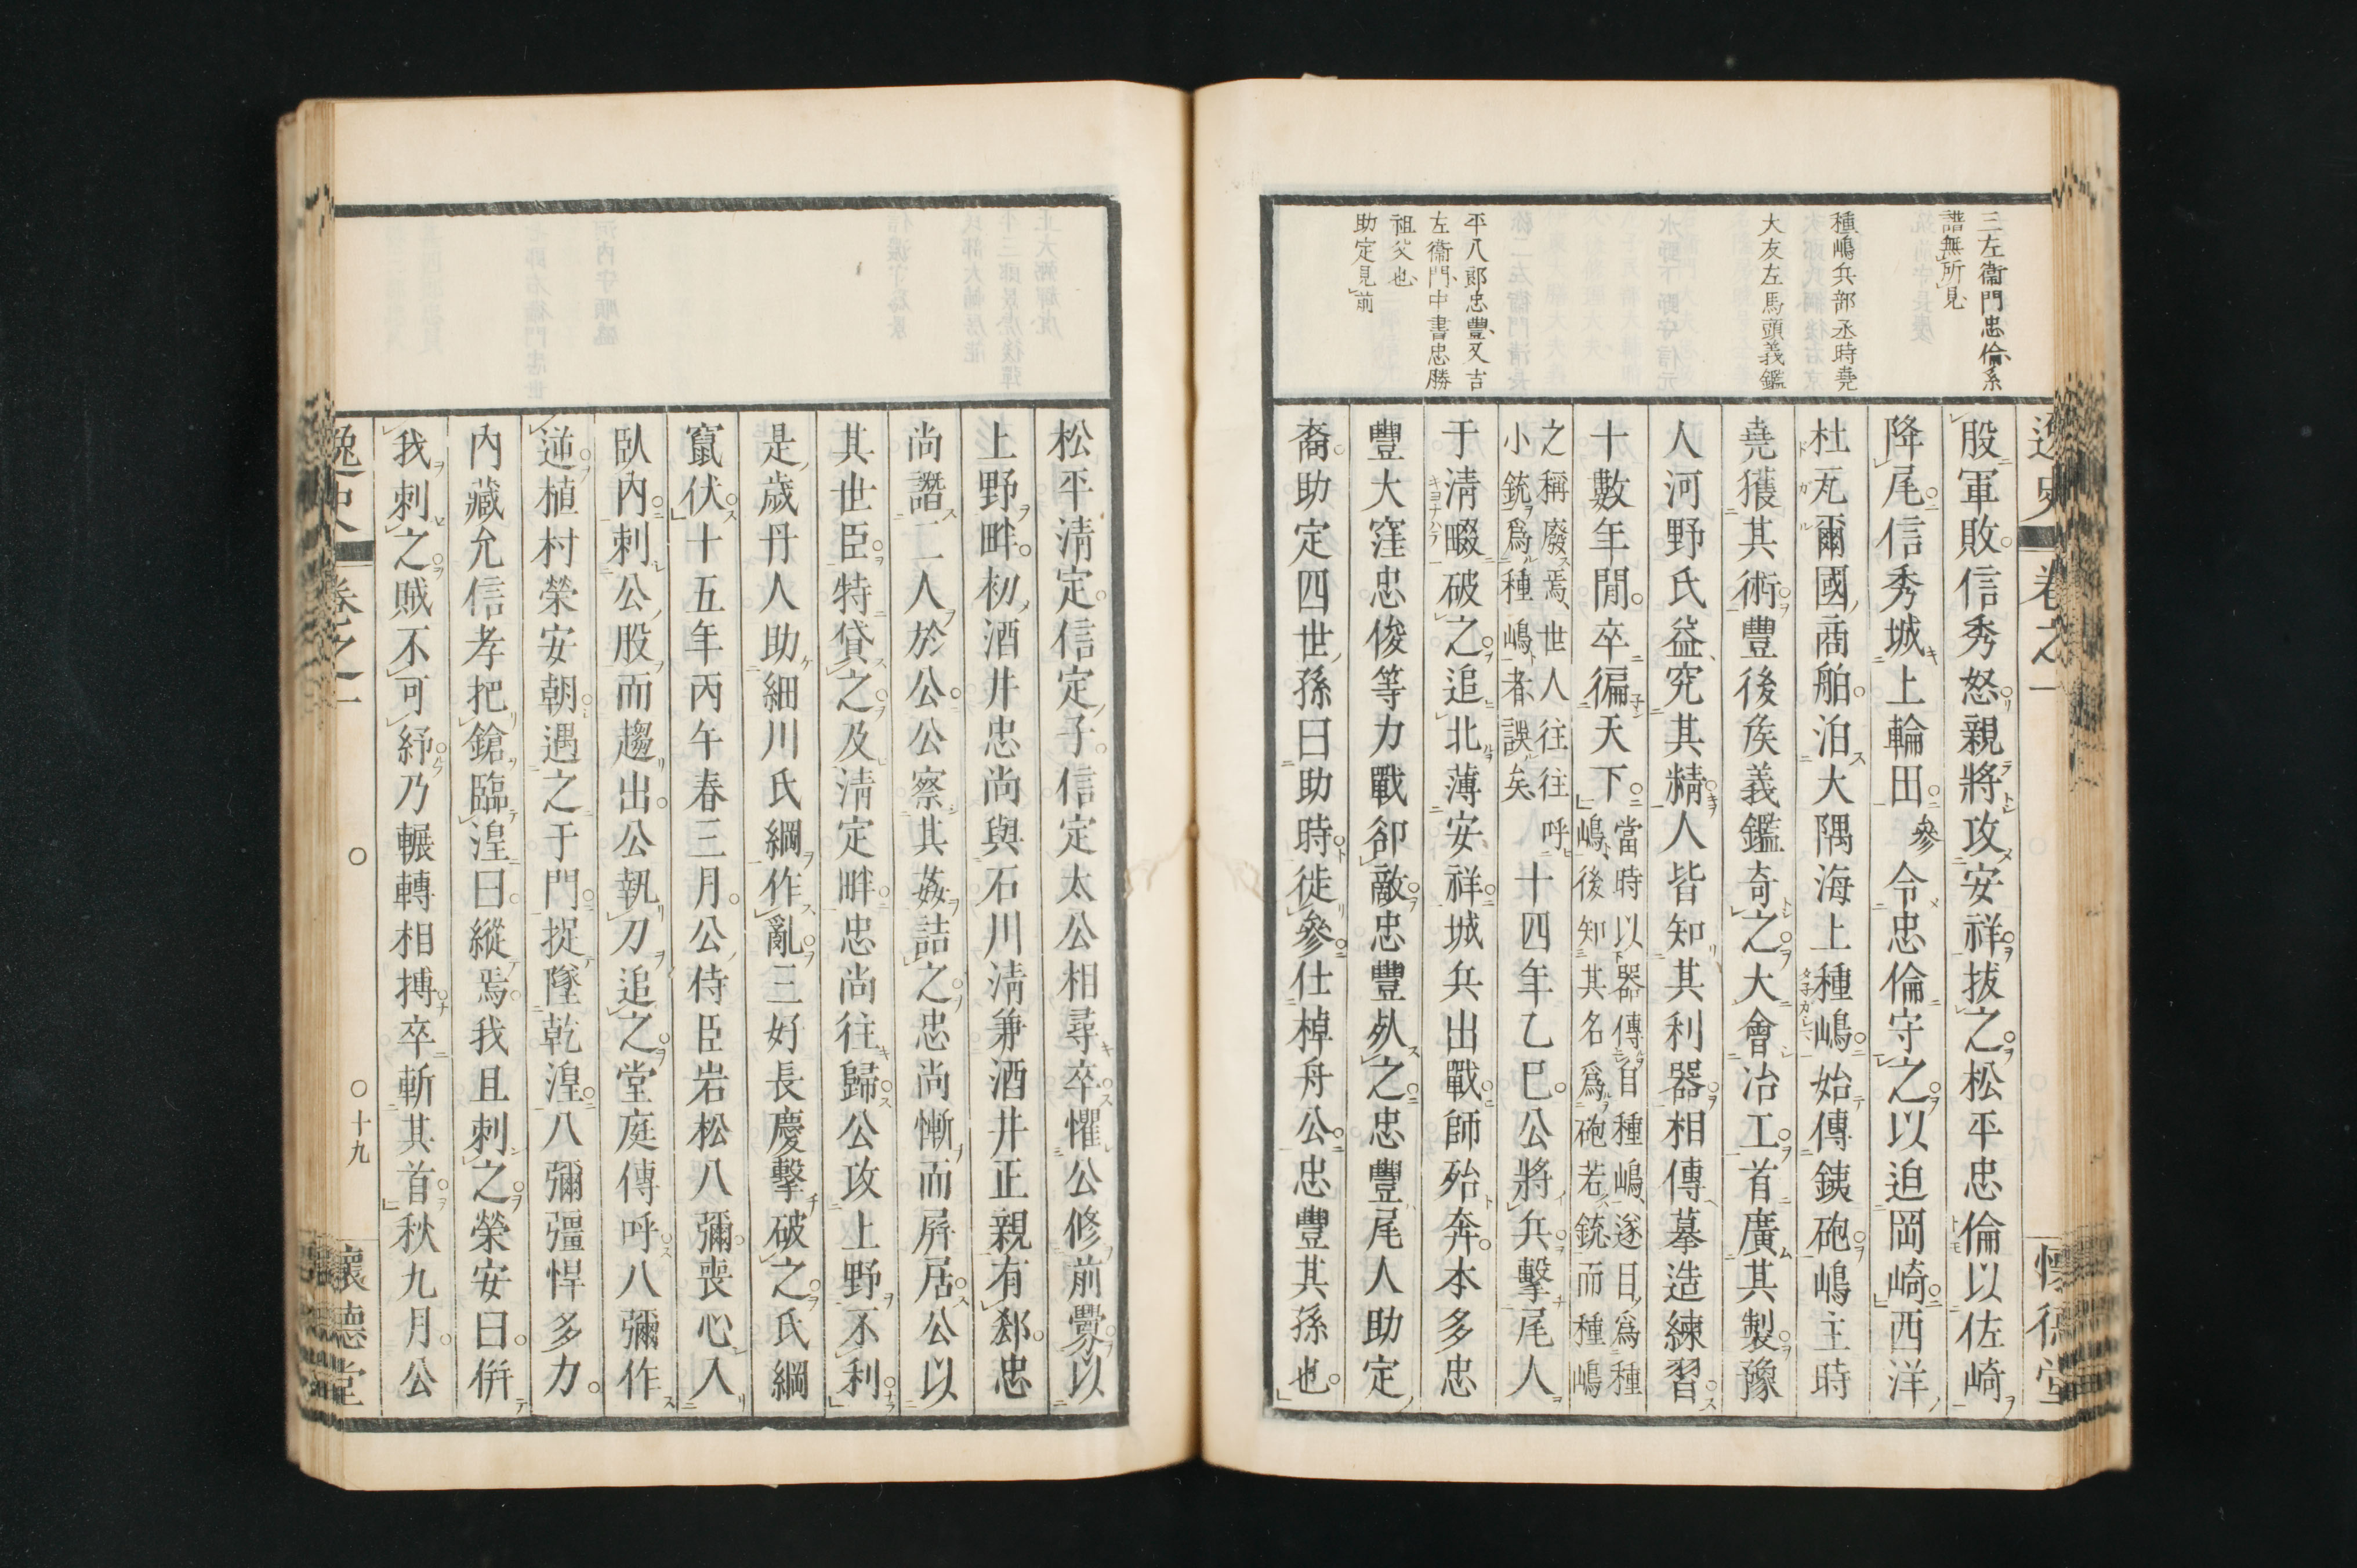 三左衞門忠倫、系
譜無所見、
種嶋兵部丞時堯
大友左馬頭義鑑
平八郎忠豐、又吉
左衞門、中書忠勝
祖父也、
助定見前
逸史
卷之一
懷德堂
股軍敗。信秀怒親將攻安祥拔之。松平忠倫以佐崎
降尾。信秀城上輪田。參令忠倫守之。以迫岡崎。西洋
杜瓦爾國商舶。泊大隅海上種嶋。始傳銕砲。嶋主時
堯獲其術。豐後矦義鑑奇之。大會冶工。首廣其製。豫
人河野氏益究其精。人皆知其利器。相傳摹造練習。
十數年閒。卒徧天下。當時以器傳自種嶋、遂目爲種
嶋、後知其名爲砲若銃、而種嶋
之稱廢焉、世人往往呼
小銃爲種嶋者、誤矣、十四年乙巳。公將兵。擊尾人
于淸畷破之。追北薄安祥。城兵出戰。師殆奔。本多忠
豐大窪忠俊等力戰卻敵。忠豐死之。忠豐尾人助定
裔。助定四世孫曰助時。徙參。仕棹舟公。忠豐其孫也。
松平淸定。信定子。信定太公相尋卒。懼公修前釁。以
上野畔。初酒井忠尚與石川淸兼酒井正親有郄。忠
尚譖二人於公。公察其姦詰之。忠尚慚而屛居。公以
其世臣。特貸之。及淸定畔。忠尚往歸。公攻上野。不利。
是歲丹人助細川氏綱作亂。三好長慶擊破之。氏綱
竄伏。十五年丙午春三月。公侍臣岩松八彌。喪心入
臥內。刺公股而趨出。公執刀追之。堂庭傳呼。八彌作
逆。植村榮安朝。遇之于門。捉墜乾湟。八彌彊悍多力。
內藏允信孝把鎗臨湟曰。縱焉。我且刺之。榮安曰。倂
我刺之。賊不可紓。乃輾轉相搏。卒斬其首。秋九月。公
逸史
卷之一
十九
懷德堂